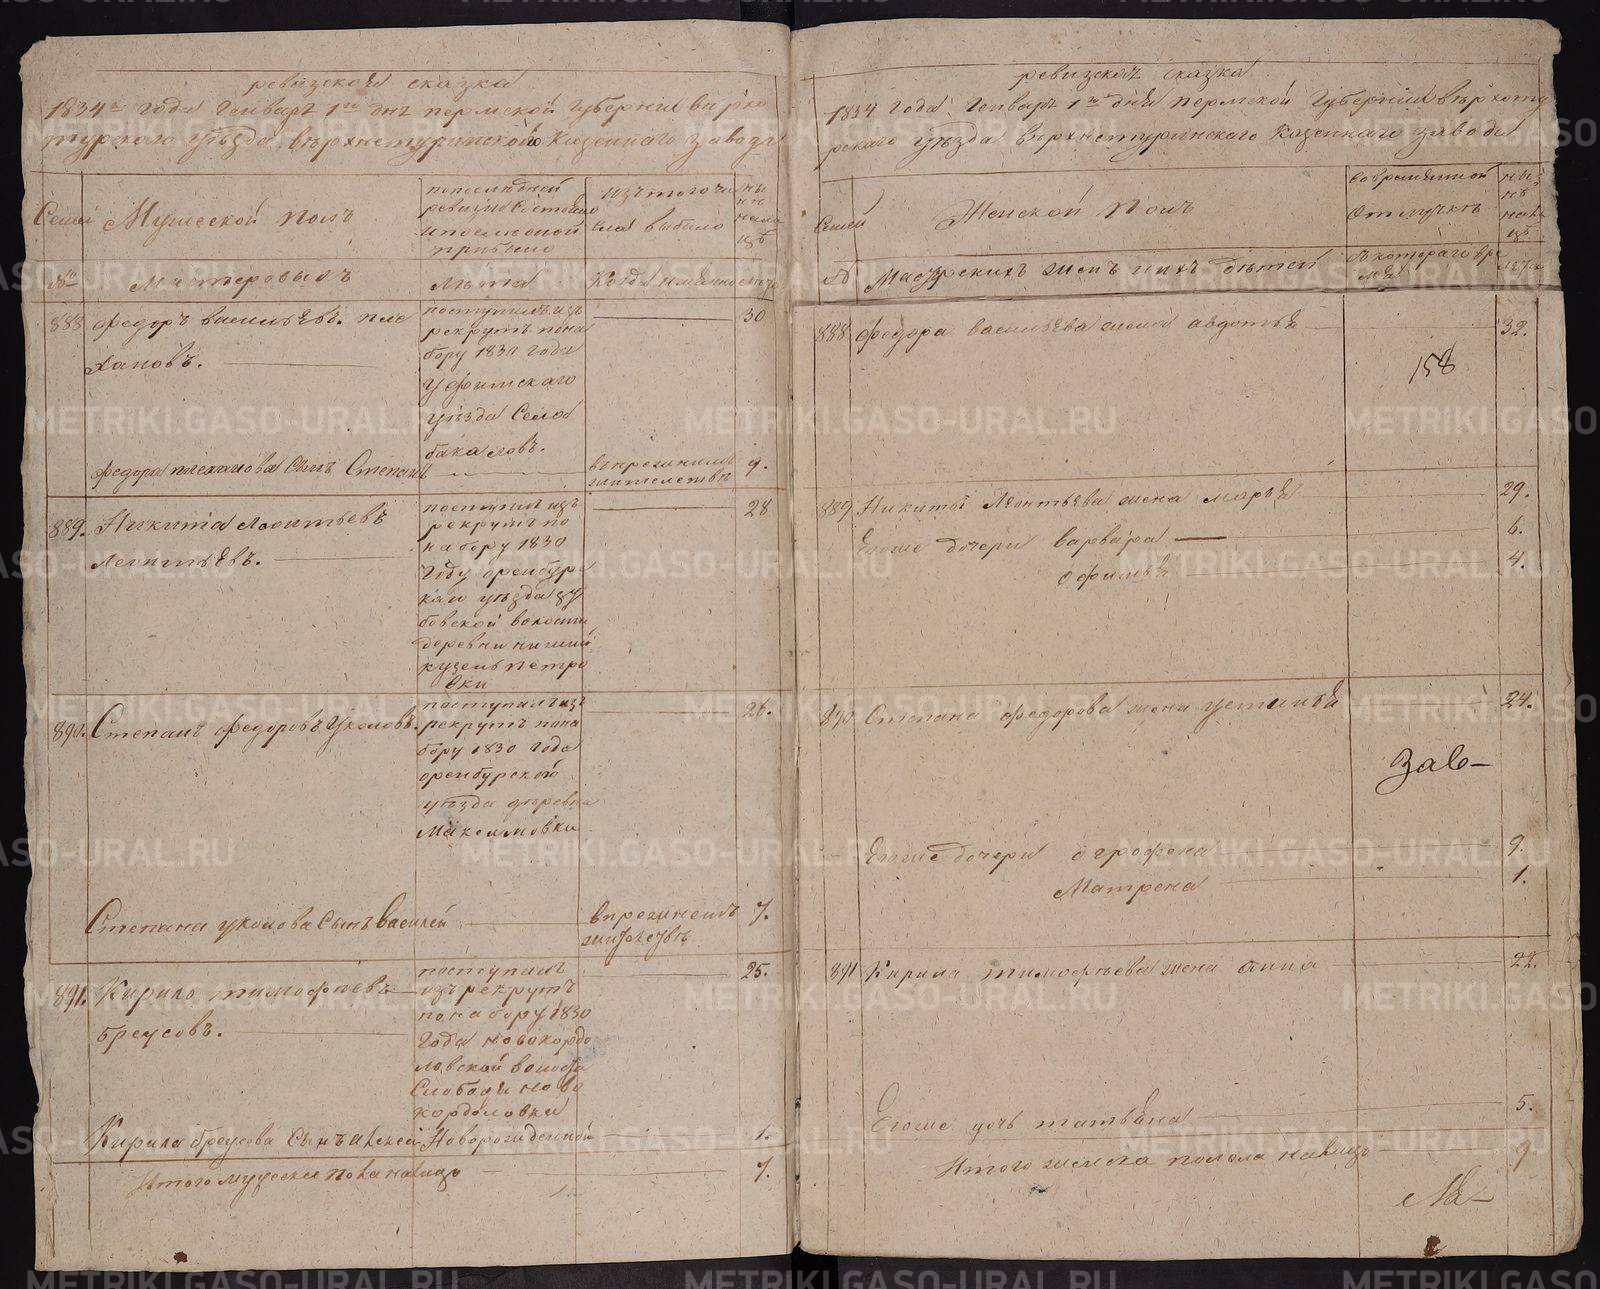 ревизская сказка
1834го года генваря 1го дня пермской губернии верхо
турского уезда верхнетуринского казенного завода
Семей
Мужеской полъ
попоследней
ревизии состояло
ипоследней
прибыло
изътого чи
сла выбыло
ны
не
нали
цо
№
Мастеровыхъ
Лета
Когда имянно
лета
888
Федоръ васильевъ пле
хановъ.
поступилъ изъ
рекрутъ пона
бору 1830 года
Уфимскаго
уезда Села
бакаловъ.
30
Федора плеханова Сынъ Степанъ
въпрежнемъ
жителстве
9.
889.
Никита Леонтьевъ
Леонтьевъ.
поступил изъ
рекрутъ по
набору 1830
году оренбург
каго уезда зу
бовской волости
деревни нижней
кузенъ петро
вки
28
890.
Степанъ Федоровъ Уколовъ.
поступилъ изъ
рекрутъ пона
бору 1830 года
оренбурской
уезда деревни
Максимовки
26.
Степана уколова Сынъ Василей
впрежнемъ
жителстве
7.
891.
Кирило тимофеевъ
бреусовъ.
поступилъ
изърекрутъ
понабору 1830
года новокордо
ловской волости
Слободы ново
кордоловки
25.
Кирила бреусова Сынъ алексей
Новорожденной
1.
Итого мужеска пола налицо
7.
ревизская сказка
1834 года генваря 1го дня пермской губернии верхоту
рскаго уезда верхнетуринскаго казеннаго завода
Семей
Женской полъ
вовременной
отлучке
ны
не
нали
цо
№
Мастерскихъ женъ ихъ детей
съкотораго вре
мя
лета
888
Федора васильева жена авдотья
32.
158
889
Никиты Леонтьева жена марья
29.
Егоже дочери варвара
6.
офимья
4.
890
Степана федорова жена устинья
24.
Зав-
Егоже дочери ографена
9.
Матрена
1.
891
Кирила тимофеева жена анна
22.
Егоже дочь татьяна
5.
Итого женска пола налицо
9
METRIKI.GASO-URAL.RU